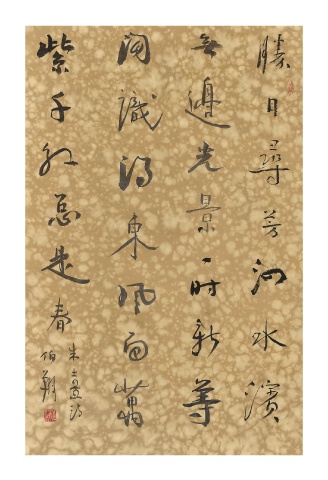 勝日尋芳泗水濱
無邊光景一時新等
閒識得東風面萬
紫千紅總是春
朱熹詩
伯翔